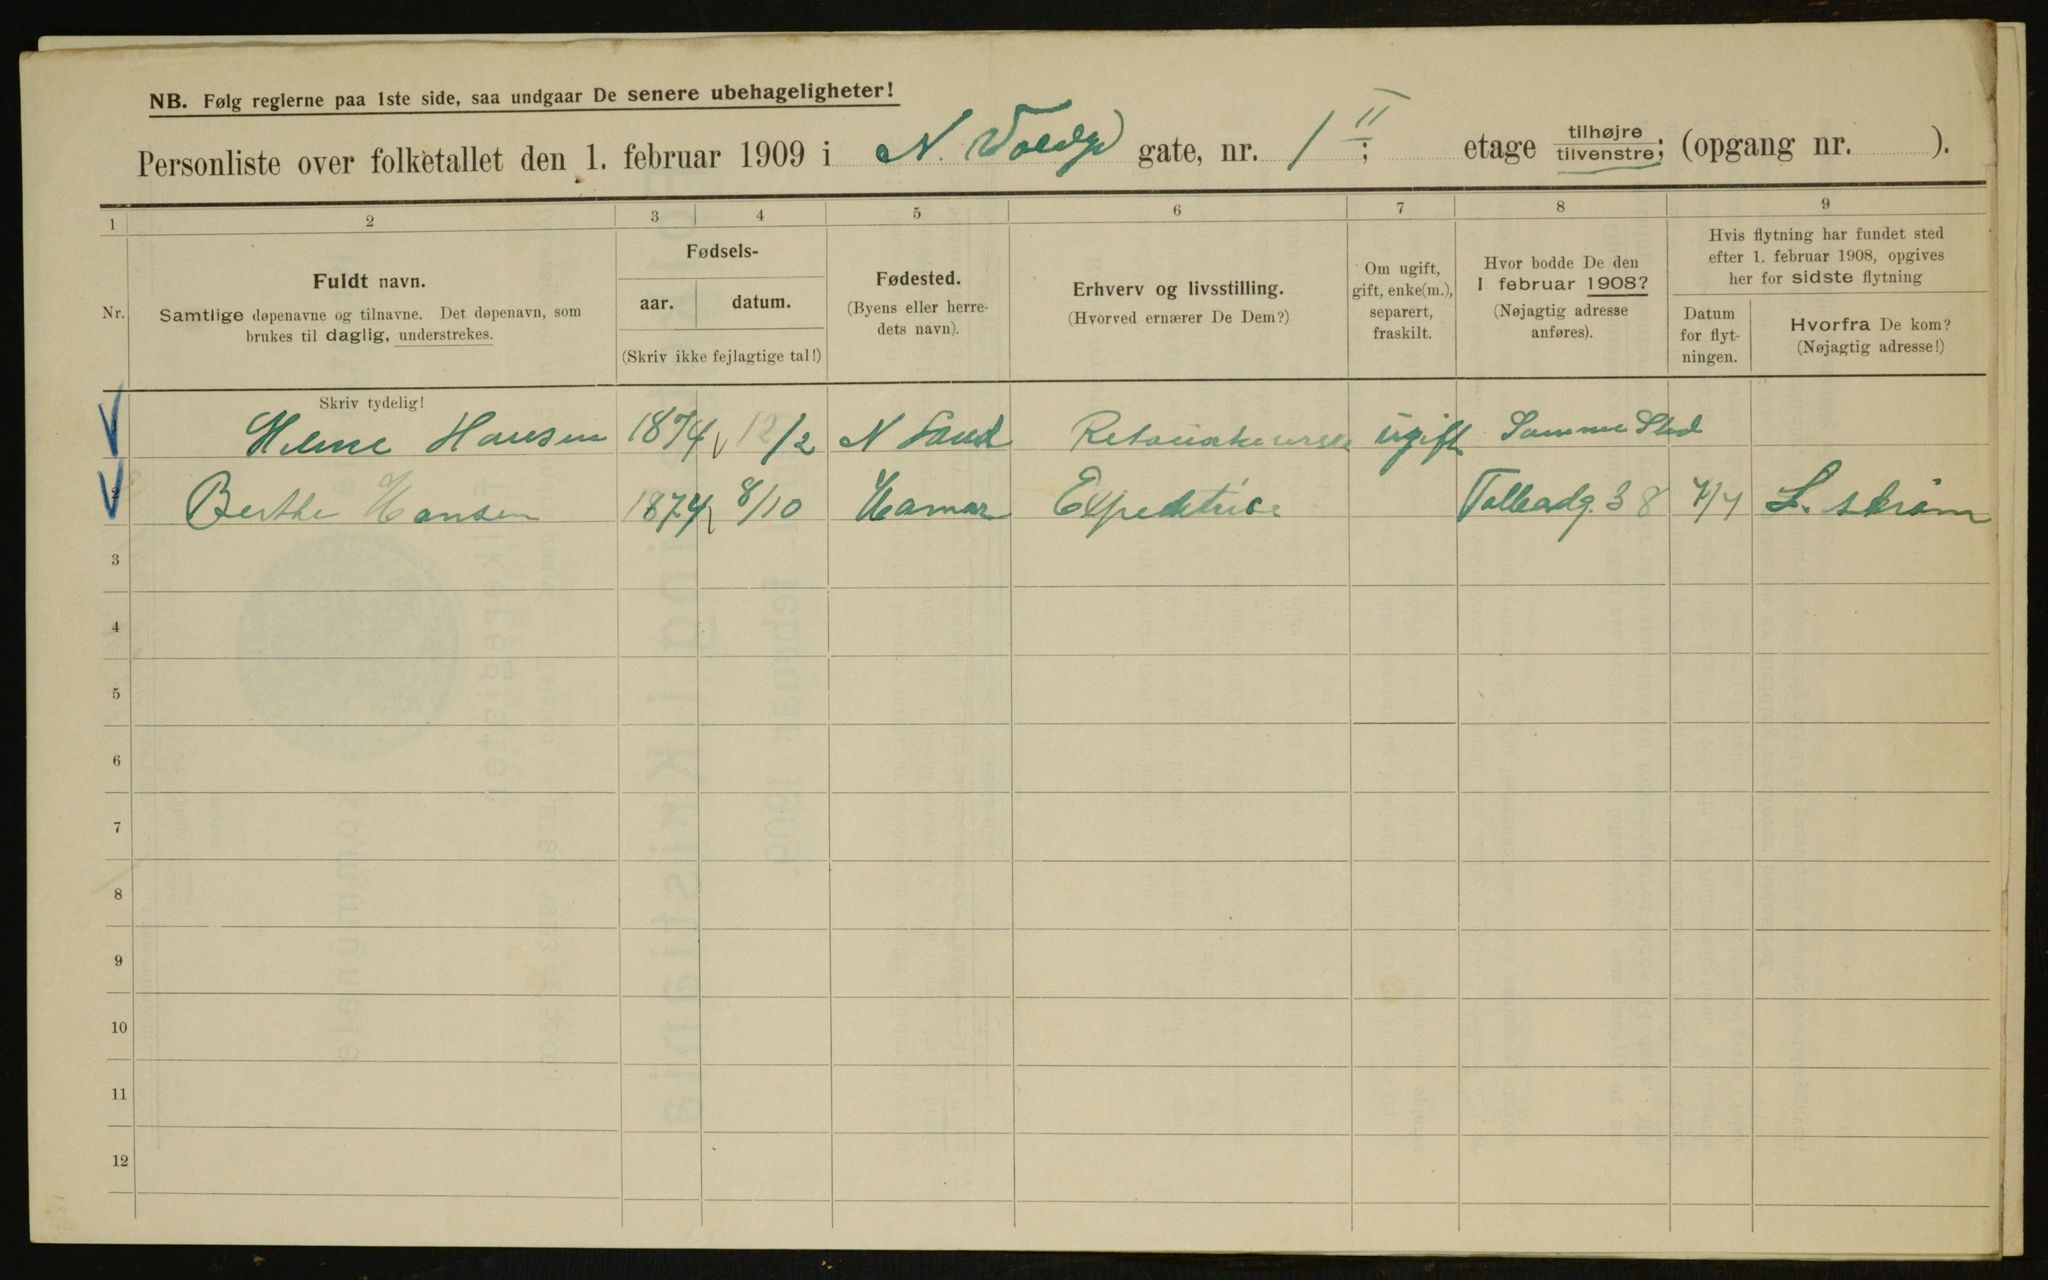 NB. Følg reglerne paa 1ste side, saa undgaar De senere ubehageligheter!
Personliste over folketallet den 1. februar 1909 i N. Voldgd gate, nr. 1 II; etage tilhøjre tilvenstre; (opgang nr. ).
1 2 3 4 5 6 7 8 9
Nr.
Fuldt navn.
Samtlige døpenavne og tilnavne. Det døpenavn, som
brukes til daglig, understrekes.
Fødsels-
aar. datum.
(Skriv ikke fejlagtige tal!)
Fødested.
(Byens eller herre-
dets navn).
Erhverv og livsstilling.
(Hvorved ernærer De Dem?)
Om ugift,
gift, enke(m.),
separert,
fraskilt.
Hvor bodde De den
1 februar 1908?
(Nøjagtig adresse
anføres).
Hvis flytning har fundet sted
efter 1. februar 1908, opgives
her for sidste flytning
Datum
for flyt-
ningen.
Hvorfra De kom?
(Nøjagtig adresse!)
Skriv tydelig!
Helene Hansen 1874 12/2 N Land ugift Samme Sted
2 Berthe Hansen 1874 8/10 Hamar Expeditrice Tolbodg. 38 7/7 L. strøm
3
4
5
6
7
8
9
10
11
12